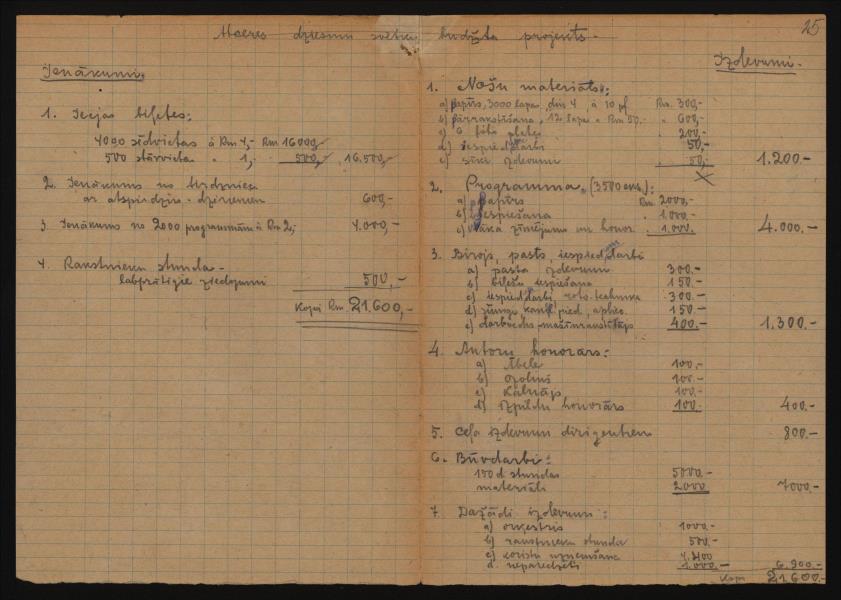 25
Maeres dziesmu svētku budžeta projekts
Ienākumi:
1. Ieejas biļetes:
4000 sēdvietas à Rm 4,- Rm 16000,-
500 stāvvieta " 1,- 500,- 16.500,-
2. Ienākums no
ar atspirdzin. dzērieniem 600,-
3. Ienākums no 2000 programmām à Rm 2,- 4.000,-
4. Rakstnieku stunda -
labprātīgie ziedojumi 500,-
Kopā Rm. 21.600,-
Izdevumi.
1. Nošu materiāls:
a) papīrs, 3000 lapa, din 4 à 10 pf Rm. 300,-
b) pārrakstīšana, 12 lapa à Rm 50.- " 600,-
c) 6 foto plates " 200,-
d) iespieddarbi 50,-
e) sīki izdevumi " 50,- 1.200.-
2. Programma, (3500 eks.):
a) papīrs Rm. 2000.-
b) iespiešana " 1.000.-
c) vāka zīmējums un honor. " 1.000. 4.000.-
3. Birojs, pasts, iespieddarbi
a) pasta izdevumi 300.-
b) biļešu iespiešana 150.-
c) iespieddarbi, roto-technika 300.-
d) 150.-
e) 400.- 1.300.-
4. Autoru honorārs:
a) Ābele 100.-
b) Ozoliņš 100.-
c) Kalniņš 100.-
d) izpildu honorārs 100. 400.-
5. Ceļa izdevumi dirigentiem 800.-
6. Būvdarbi:
150 d. stundas 5000.-
materiāli 2000 7000.-
7. Dažādi izdevumi:
a) orķestris 1000.-
b) rakstnieku stunda 500.-
c) koristu uzņemšana 4.400
d. neparedzēti 1.000.- 6.900.-
Kopā 21.600.-